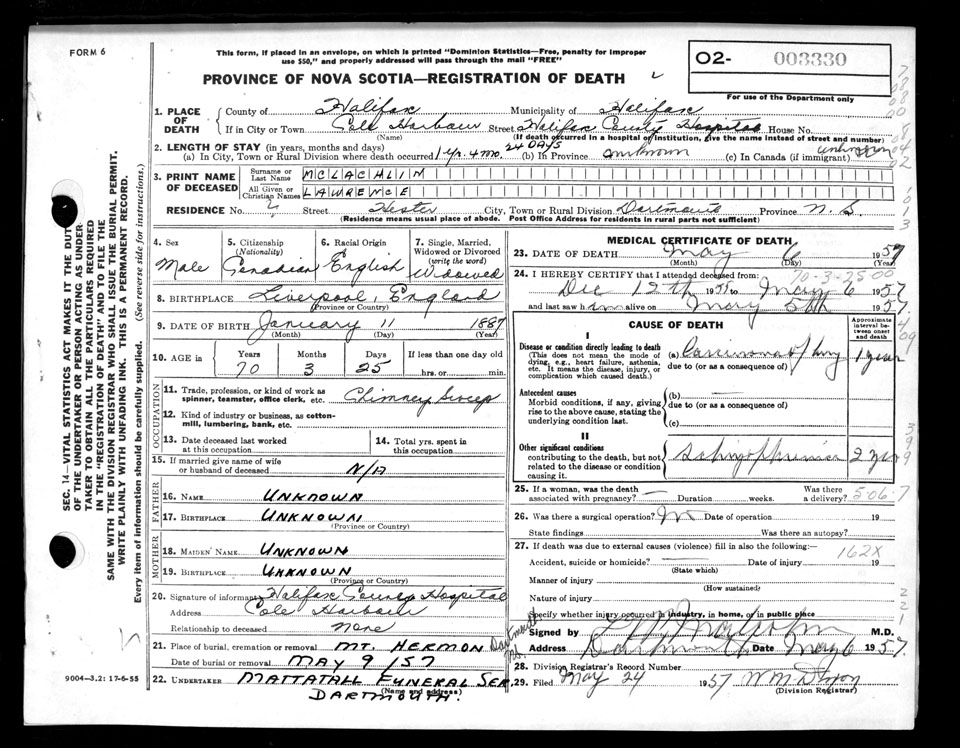 FORM 6
This form, if placed in an envelope, on which is printed "Dominion Statistics—Free, penalty for improper
use $50," and properly addressed will pass through the mail "FREE"
PROVINCE OF NOVA SCOTIA—REGISTRATION OF DEATH
02- 003330
For use of the Department only
1. PLACE OF DEATH
County of Halifax Municipality of Halifax
If in City or Town Cole Harbour Street Halifax County Hospital House No.
(Name) (If death occurred in a hospital or institution, give the name instead of street and number)
2. LENGTH OF STAY (in years, months and days)
(a) In City, Town or Rural Division where death occurred 1 yr. 4 mo. 24 DAYS (b) In Province unknown (c) In Canada (if immigrant) unknown
3. PRINT NAME OF DECEASED
Surname or Last Name MCLACHLIN
All Given or Christian Names LAWRENCE
RESIDENCE No. 4 Street Hester City, Town or Rural Division Dartmouth Province N.S.
(Residence means usual place of abode. Post Office Address for residents in rural parts not sufficient)
4. Sex
Male
5. Citizenship
(Nationality)
Canadian
6. Racial Origin
English
7. Single, Married,
Widowed or Divorced
(write the word)
Widowed
8. BIRTHPLACE Liverpool, England
(Province or Country)
9. DATE OF BIRTH January 11 1887
(Month) (Day) (Year)
10. AGE in Years Months Days If less than one day old
70 3 25 hrs. or min.
OCCUPATION
11. Trade, profession, or kind of work as
spinner, teamster, office clerk, etc. Chimney Sweep
12. Kind of industry or business, as cotton-
mill, lumbering, bank, etc.
13. Date deceased last worked
at this occupation
14. Total yrs. spent in
this occupation
15. If married give name of wife
or husband of deceased N/A
FATHER
16. NAME UNKNOWN
17. BIRTHPLACE UNKNOWN
(Province or Country)
MOTHER
18. MAIDEN NAME UNKNOWN
19. BIRTHPLACE UNKNOWN
(Province or Country)
20. Signature of informant Halifax County Hospital
Address Cole Harbour
Relationship to deceased none
21. Place of burial, cremation or removal MT. HERMON Dartmouth NS.
Date of burial or removal MAY 9/57
22. UNDERTAKER MATTATALL FUNERAL SER.
(Name and address)
DARTMOUTH.
MEDICAL CERTIFICATE OF DEATH
23. DATE OF DEATH May 6 1957
(Month) (Day)
24. I HEREBY CERTIFY that I attended deceased from:
70-3-25 00
Dec 12th 1955 to May 6 1957
and last saw him alive on May 5th 1957.
CAUSE OF DEATH
Approximate
interval be-
tween onset
and death
I
Disease or condition directly leading to death
(This does not mean the mode of
dying, e.g., heart failure, asthenia,
etc. It means the disease, injury, or
complication which caused death.)
(a) Carcinoma of lung 1 year
due to (or as a consequence of)
Antecedent causes
Morbid conditions, if any, giving
rise to the above cause, stating the
underlying condition last.
(b)
due to (or as a consequence of)
(c)
II
Other significant conditions
contributing to the death, but not
related to the disease or condition
causing it.
Schizophrenia 2 years
25. If a woman, was the death
associated with pregnancy? — Duration weeks. Was there
a delivery?
506.7
26. Was there a surgical operation? No Date of operation 19
State findings Was there an autopsy?
27. If death was due to external causes (violence) fill in also the following:—
162X
Accident, suicide or homicide? Date of injury 19
(State which)
Manner of injury
(How sustained)
Nature of injury
Specify whether injury occurred in industry, in home, or in public place
Signed by M.D.
Address Dartmouth Date May 6 1957
28. Division Registrar's Record Number
29. Filed May 24 1957
(Division Registrar)
SEC. 14—VITAL STATISTICS ACT MAKES IT THE DUTY
OF THE UNDERTAKER OR PERSON ACTING AS UNDER-
TAKER TO OBTAIN ALL THE PARTICULARS REQUIRED
IN THE "REGISTRATION OF DEATH" AND TO FILE THE
SAME WITH THE DIVISION REGISTRAR WHO SHALL ISSUE THE BURIAL PERMIT.
WRITE PLAINLY WITH UNFADING INK. THIS IS A PERMANENT RECORD.
Every item of information should be carefully supplied. (See reverse side for instructions.)
9004-3.2: 17-6-55